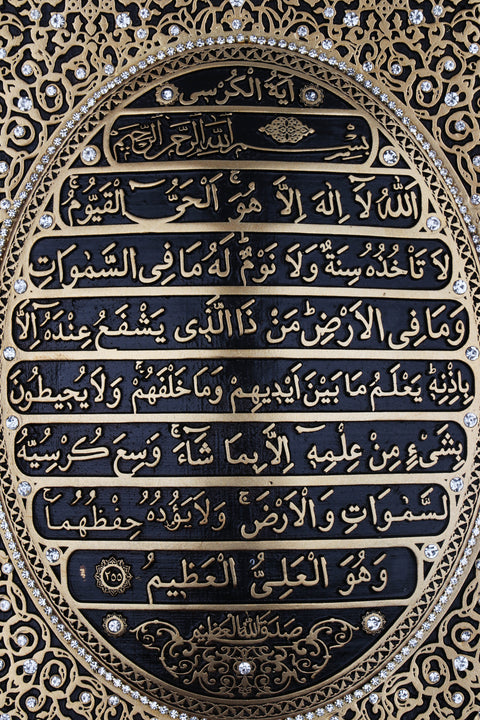 آيَةُ الْكُرْسِى
بِسْمِ اللّٰهِ الرَّحْمٰنِ الرَّحِيمِ
اَللّٰهُ لَٓا اِلٰهَ اِلَّا هُوَۚ اَلْحَىُّ الْقَيُّومُۚ
لَا تَاْخُذُهُ سِنَةٌ وَلَا نَوْمٌۜ لَهُ مَا فِى السَّمٰوَاتِ
وَمَا فِى الْاَرْضِۜ مَنْ ذَا الَّذٖى يَشْفَعُ عِنْدَهُٓ اِلَّا
بِاِذْنِهٖۜ يَعْلَمُ مَا بَيْنَ اَيْدٖيهِمْ وَمَا خَلْفَهُمْۚ وَلَا يُحٖيطُونَ
بِشَیْءٍ مِنْ عِلْمِهٖٓ اِلَّا بِمَا شَٓاءَۚ وَسِعَ كُرْسِيُّهُ
السَّمٰوَاتِ وَالْاَرْضَۚ وَلَا يَؤُدُهُ حِفْظُهُمَاۚ
وَهُوَ الْعَلِىُّ الْعَظٖيمُ ٢٥٥
صَدَقَ اللّٰهُ الْعَظِيم